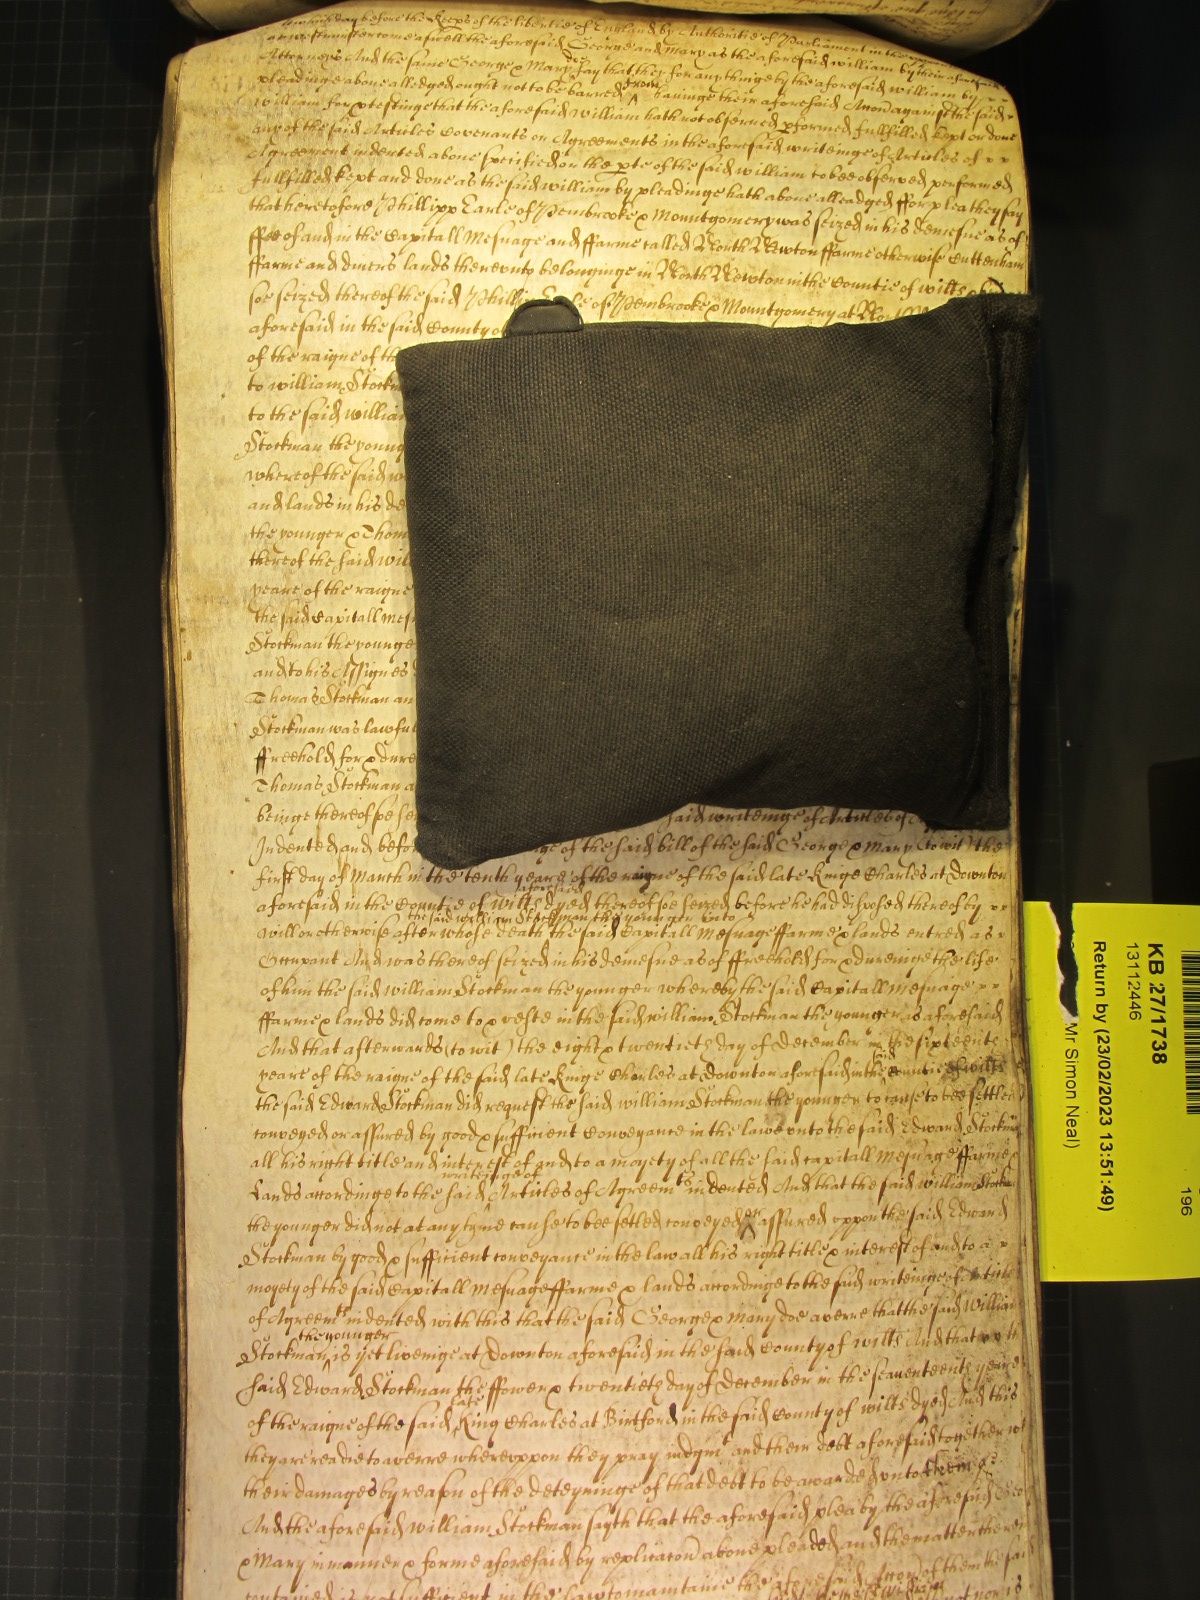 before the Keeps of the libertie of England by Authoritie of Parliament in the
at westminster come aswell the aforesaid George and Mary as the aforesaid william by their aforesaid
Attorneys And the same George & Mary doe say that they for any thinge by the aforesaid william by
pleadinge above alledged ought not to be barred from havinge their aforesaid Accon against the said
william for ptestinge that the aforesaid william hath not observed pformed fullfilled kept or done
any of the said Articles Covenants or Agreements in the aforesaid writeinge of Articles of
Agreement indented above specified on the pte of the said william to bee observed performed
fullfilled kept and done as the said william by pleadinge hath above alleadged ffor plea they say
that heretofore Phillipp Earle of Pembrooke & Mountgomery was seized in his demesne as of
ffee of and in the Capitall Mesuage and ffarme called North Newton ffarme otherwise Cuttenham
ffarme and divers lands thereunto belonginge in North Newton in the Countie of wilts
soe seized thereof the said Phillipp Earle of Pembrooke & Mountgomery at North
aforesaid in the said County of
of the raigne of the
to william Stockm
to the said william
Stockman the young
whereof the said w
and lands in his de
the younger & Thom
thereof the said wil
yeare of the raigne
the said Capitall mes
Stockman the younge
and to his Assignes
Thomas Stockman an
Stockman was lawfu
ffreehold for & dure
Thomas Stockman a
beinge thereof soe se said writeinge of Articles of
Indented and befo ge of the said bill of the said George & Mary (to wit) the
first day of March in the tenth yeare of the raigne of the said late Kinge Charles at Downton
aforesaid in the Countie of wilts aforesaid dyed thereof soe seized before he had disposed thereof by
will or otherwise after whose death the said william Stockman the younger into the said Capitall Mesuage ffarme & lands entred as
Occupant And was thereof seized in his demesne as of ffreehold for & dureinge the life
of him the said william Stockman the younger whereby the said Capitall Mesuage
ffarme & lands did come to & veste in the said william Stockman the younger as aforesaid
And that afterwards (to wit) the eight & twentieth day of December in the sixteenth
yeare of the raigne of the said late Kinge Charles at Downton aforesaid in the said Countie of wilts
the said Edward Stockman did request the said william Stockman the younger to cause to bee settled
conveyed or assured by good & sufficient Conveyance in the lawe unto the said Edward Stockman
all his right title and interest of and to a moyety of all the said capitall Mesuage ffarme &
Lands accordinge to the said writeinge of Articles of Agreemts indented And that the said william Stockm
the younger did not at any tyme cause to bee setled conveyed or assured uppon the said Edward
Stockman by good & sufficient conveyance in the law all his right title & interest of and to a
moyety of the said Capitall Mesuage ffarme & lands accordinge to the said writeinge of Article
of Agreemts indented with this that the said George & Mary doe averre that the said William
Stockman the younger is yet liveinge at Downton aforesaid in the said County of wilts And that th
said Edward Stockman the ffower & twentieth day of December in the seaventeenth yeare
of the raigne of the said late King Charles at Birtford in the said County of wilts dyed And this
they are readie to averre whereuppon they pray iudgmt and their debt aforesaid together wt
their damages by reason of the deteyninge of that debt to be awarded unto them &c
And the aforesaid William Stockman sayth that the aforesaid plea by the aforesaid Geo
& Mary in manner & forme aforesaid by replicacon above pleaded and the matter therein
contained is not sufficient in the law to maintaine the aforesaid Accon of them the said
KB 27/1738
13112446
Return by (23/02/2023 13:51:49)
Mr Simon Neal)
196